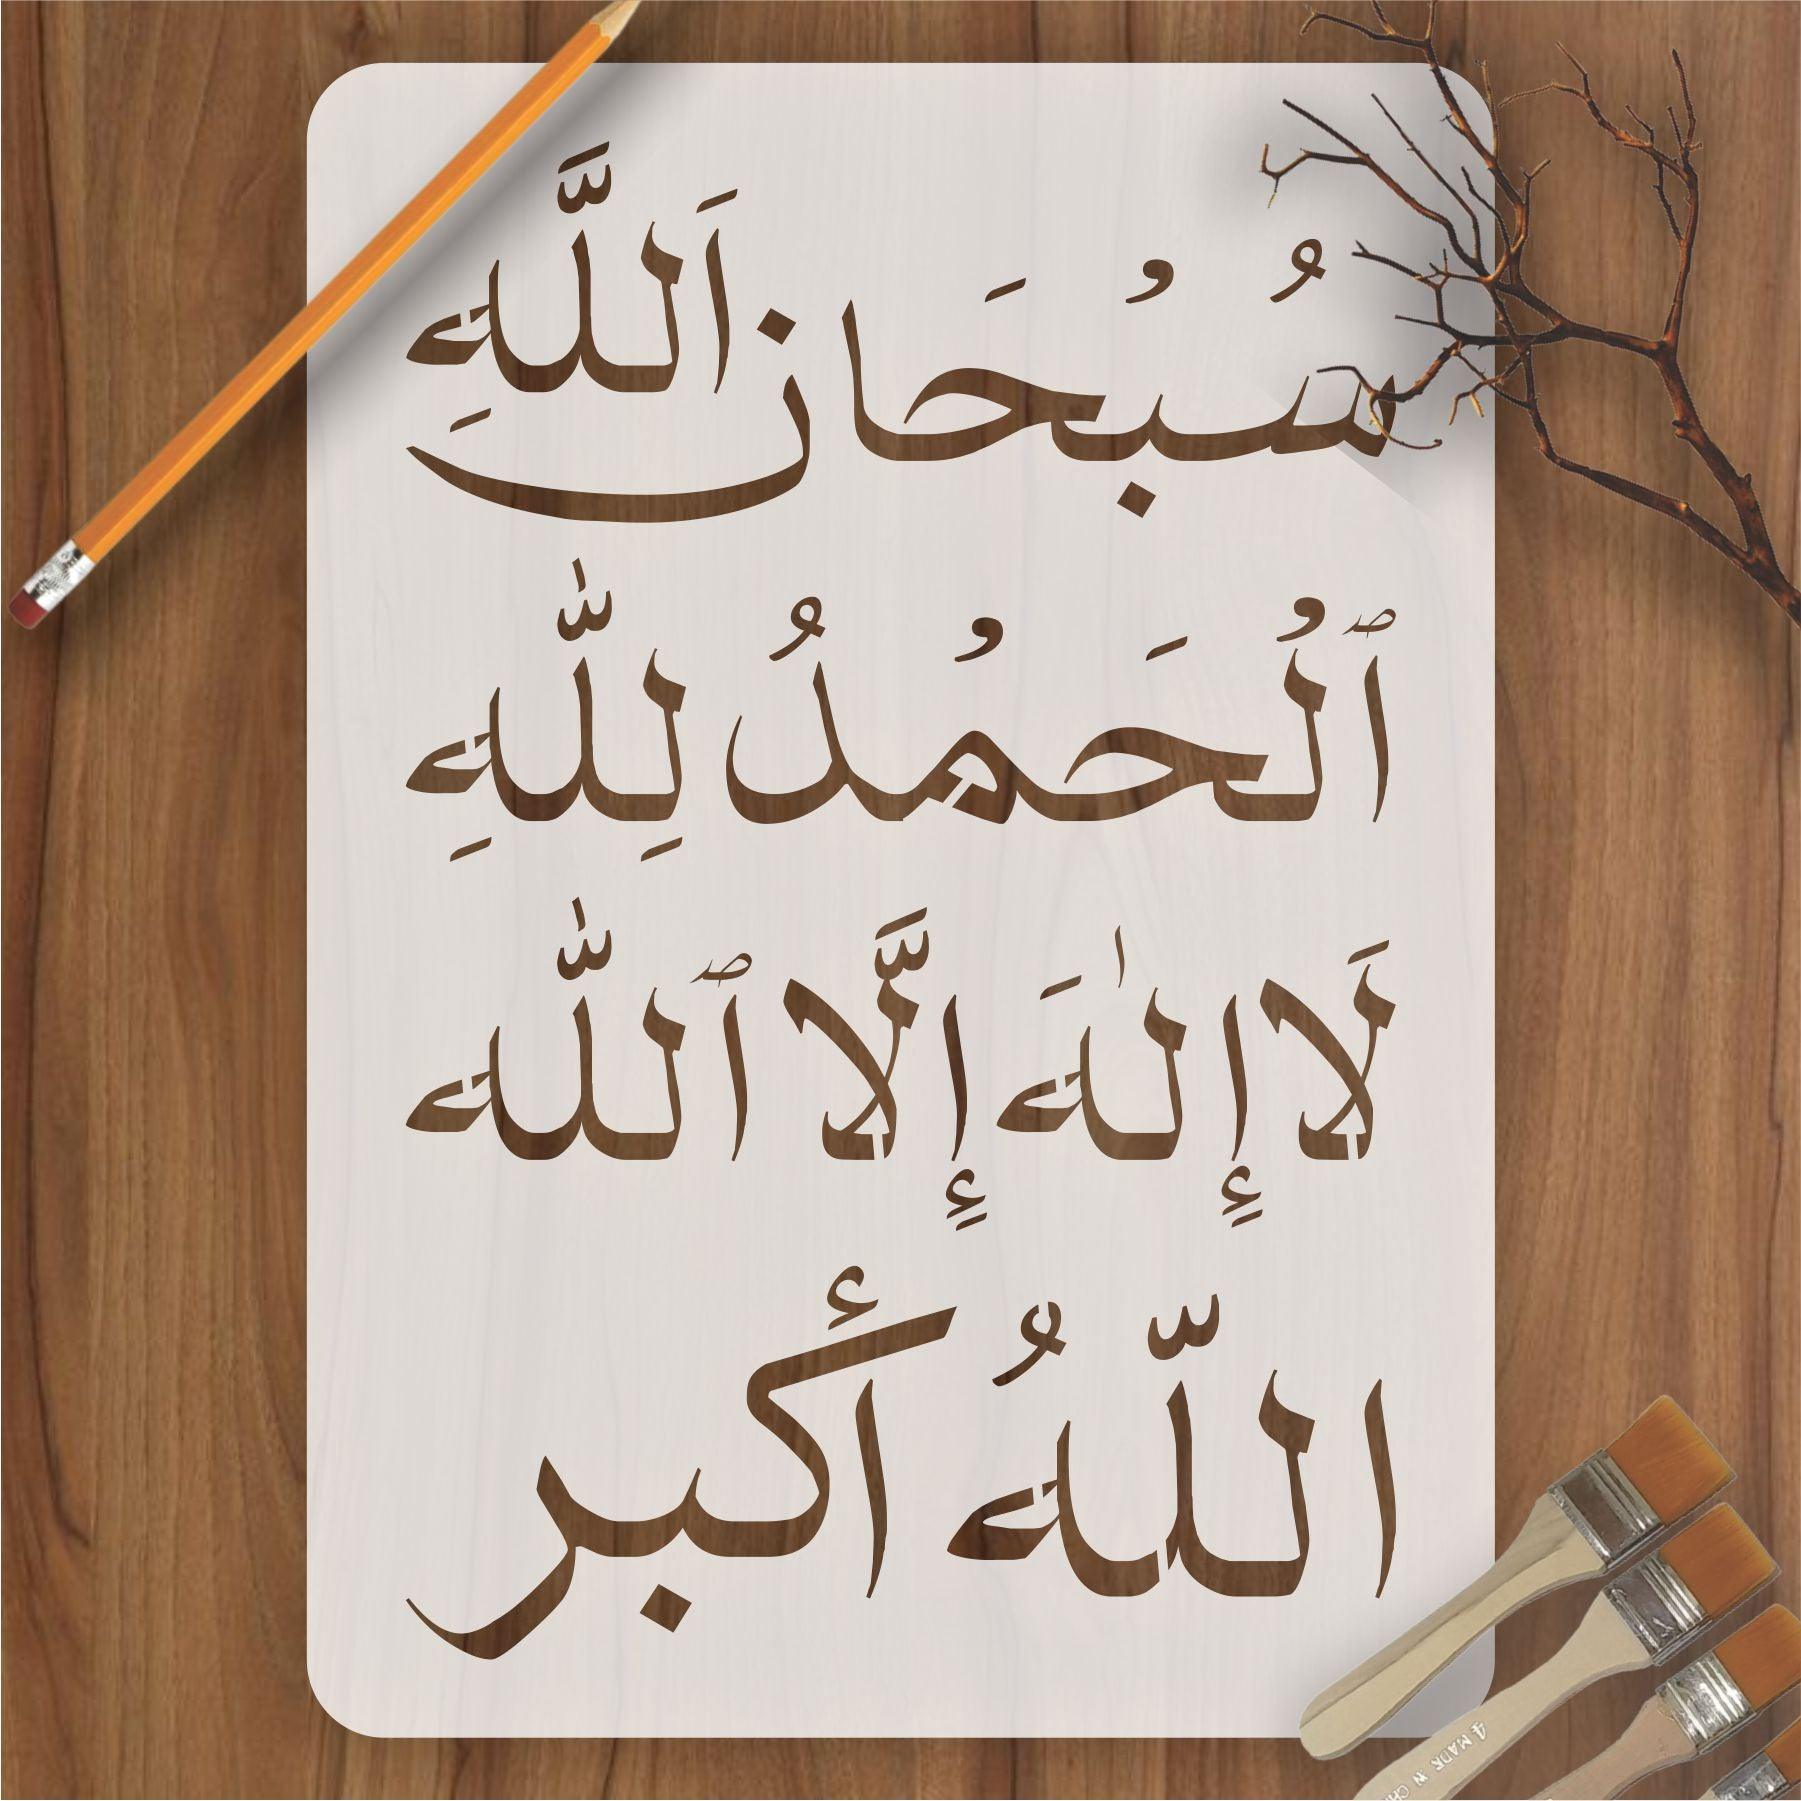 سُبْحَان اَللَّهِ
ٱلْحَمْدُ لِلّٰهِ
لَا إِلٰهَ إِلَّا ٱللّٰه
اللّهُ أكبر
4 MADE IN CH